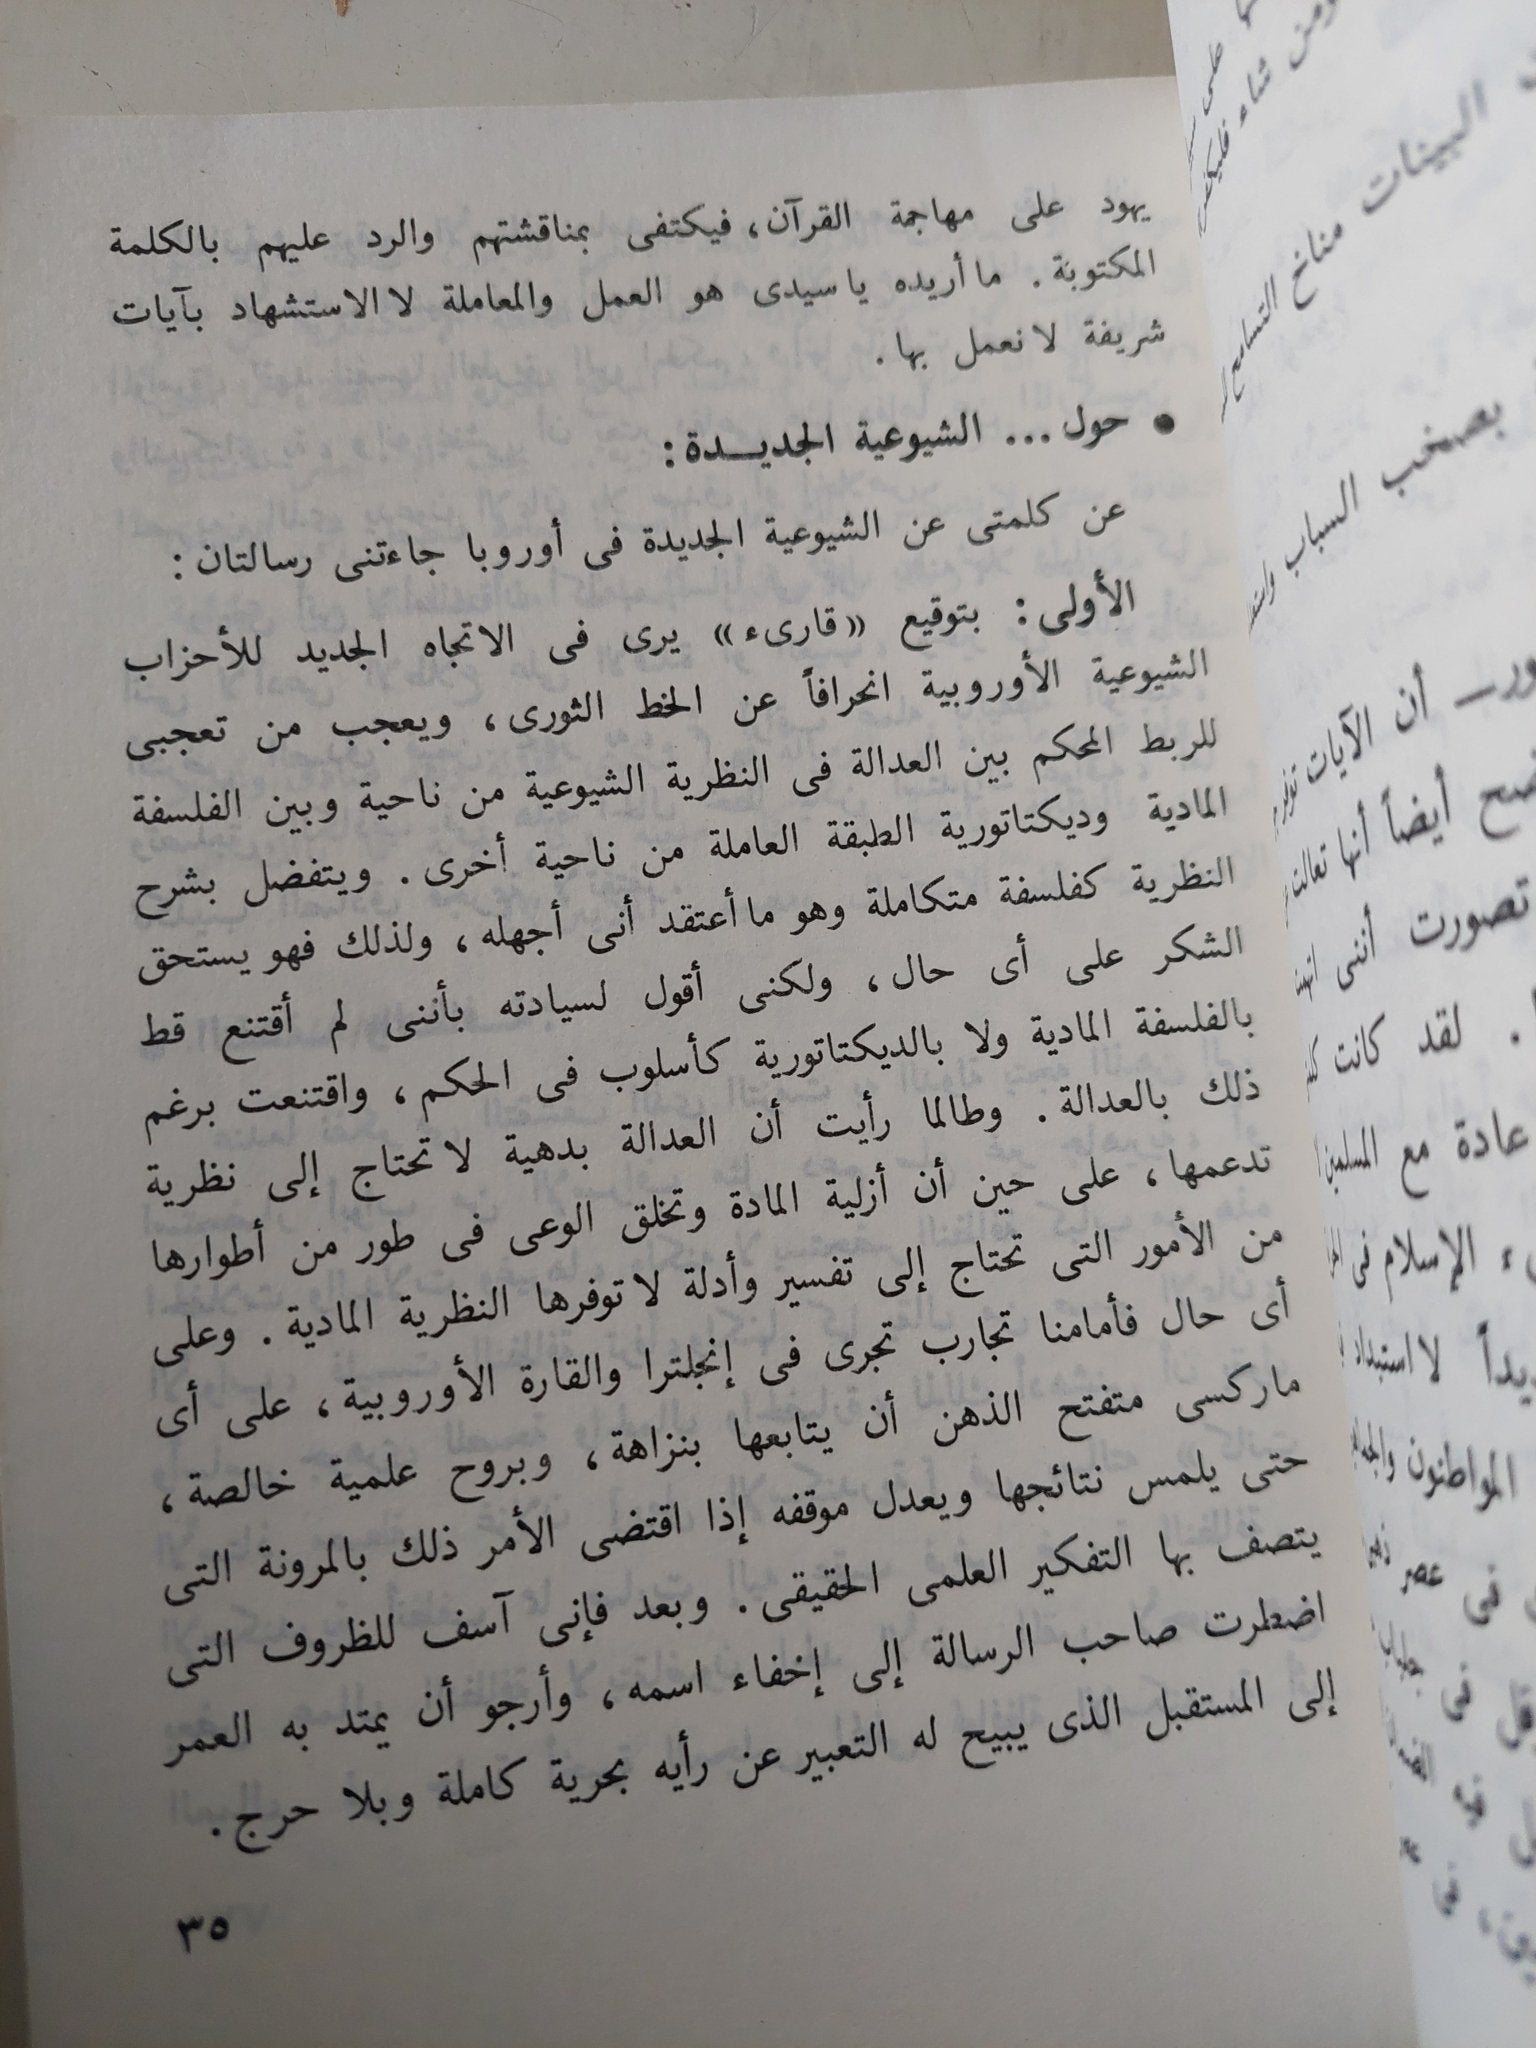 يهود على مهاجمة القرآن، فيكتفى بمناقشتهم والرد عليهم بالكلمة
المكتوبة. ما أريده يا سيدى هو العمل والمعاملة لا الاستشهاد بآيات
شريفة لا نعمل بها.
• حول... الشيوعية الجديـــدة:
عن كلمتى عن الشيوعية الجديدة فى أوروبا جاءتنى رسالتان:
الأولى: بتوقيع «قارىء» يرى فى الاتجاه الجديد للأحزاب
الشيوعية الأوروبية انحرافاً عن الخط الثورى، ويعجب من تعجبى
للربط المحكم بين العدالة فى النظرية الشيوعية من ناحية وبين الفلسفة
المادية وديكتاتورية الطبقة العاملة من ناحية أخرى. ويتفضل بشرح
النظرية كفلسفة متكاملة وهو ما أعتقد أنى أجهله، ولذلك فهو يستحق
الشكر على أى حال، ولكنى أقول لسيادته بأننى لم أقتنع قط
بالفلسفة المادية ولا بالديكتاتورية كأسلوب فى الحكم، واقتنعت برغم
ذلك بالعدالة. وطالما رأيت أن العدالة بدهية لا تحتاج إلى نظرية
تدعمها، على حين أن أزلية المادة وتخلق الوعى فى طور من أطوارها
من الأمور التى تحتاج إلى تفسير وأدلة لا توفرها النظرية المادية. وعلى
أى حال فأمامنا تجارب تجرى فى إنجلترا والقارة الأوروبية، على أى
ماركسى متفتح الذهن أن يتابعها بنزاهة، وبروح علمية خالصة،
حتى يلمس نتائجها ويعدل موقفه إذا اقتضى الأمر ذلك بالمرونة التى
يتصف بها التفكير العلمى الحقيقى. وبعد فإنى آسف للظروف التى
اضطرت صاحب الرسالة إلى إخفاء اسمه، وأرجو أن يمتد به العمر
إلى المستقبل الذى يبيح له التعبير عن رأيه بحرية كاملة وبلا حرج.
٣٥
البينات مناخ التسامح
بصخب السباب
أن الآيات
أيضاً أنها تعالت
تصورت أننى
. لقد كانت
عادة مع المسلمين
الإسلام فى
لا استبداد
المواطنون
فى عصر
فى